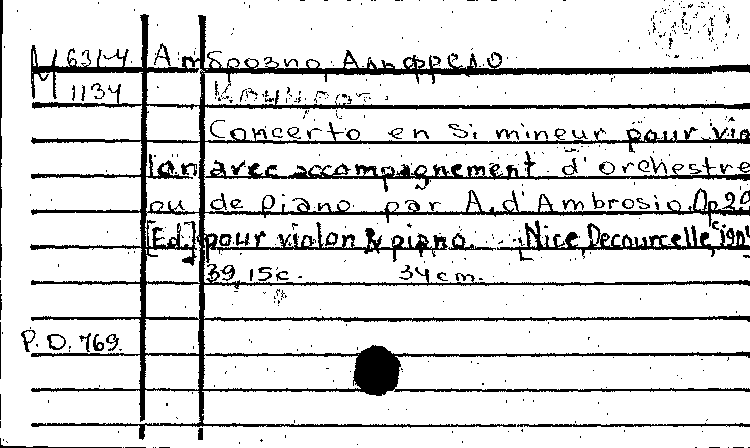 М 63/-4 Амброзио, Альфредо
1134 Концерт.
Concerto en Si mineur pour vio
lon avec accompagnement d'orchestre
ou de piano par A. d'Ambrosio. Op. 29
[Ed.] pour violon & piano. [Nice, Decourcelle,
39, 15 c. 34 cm.
P. D. 769.